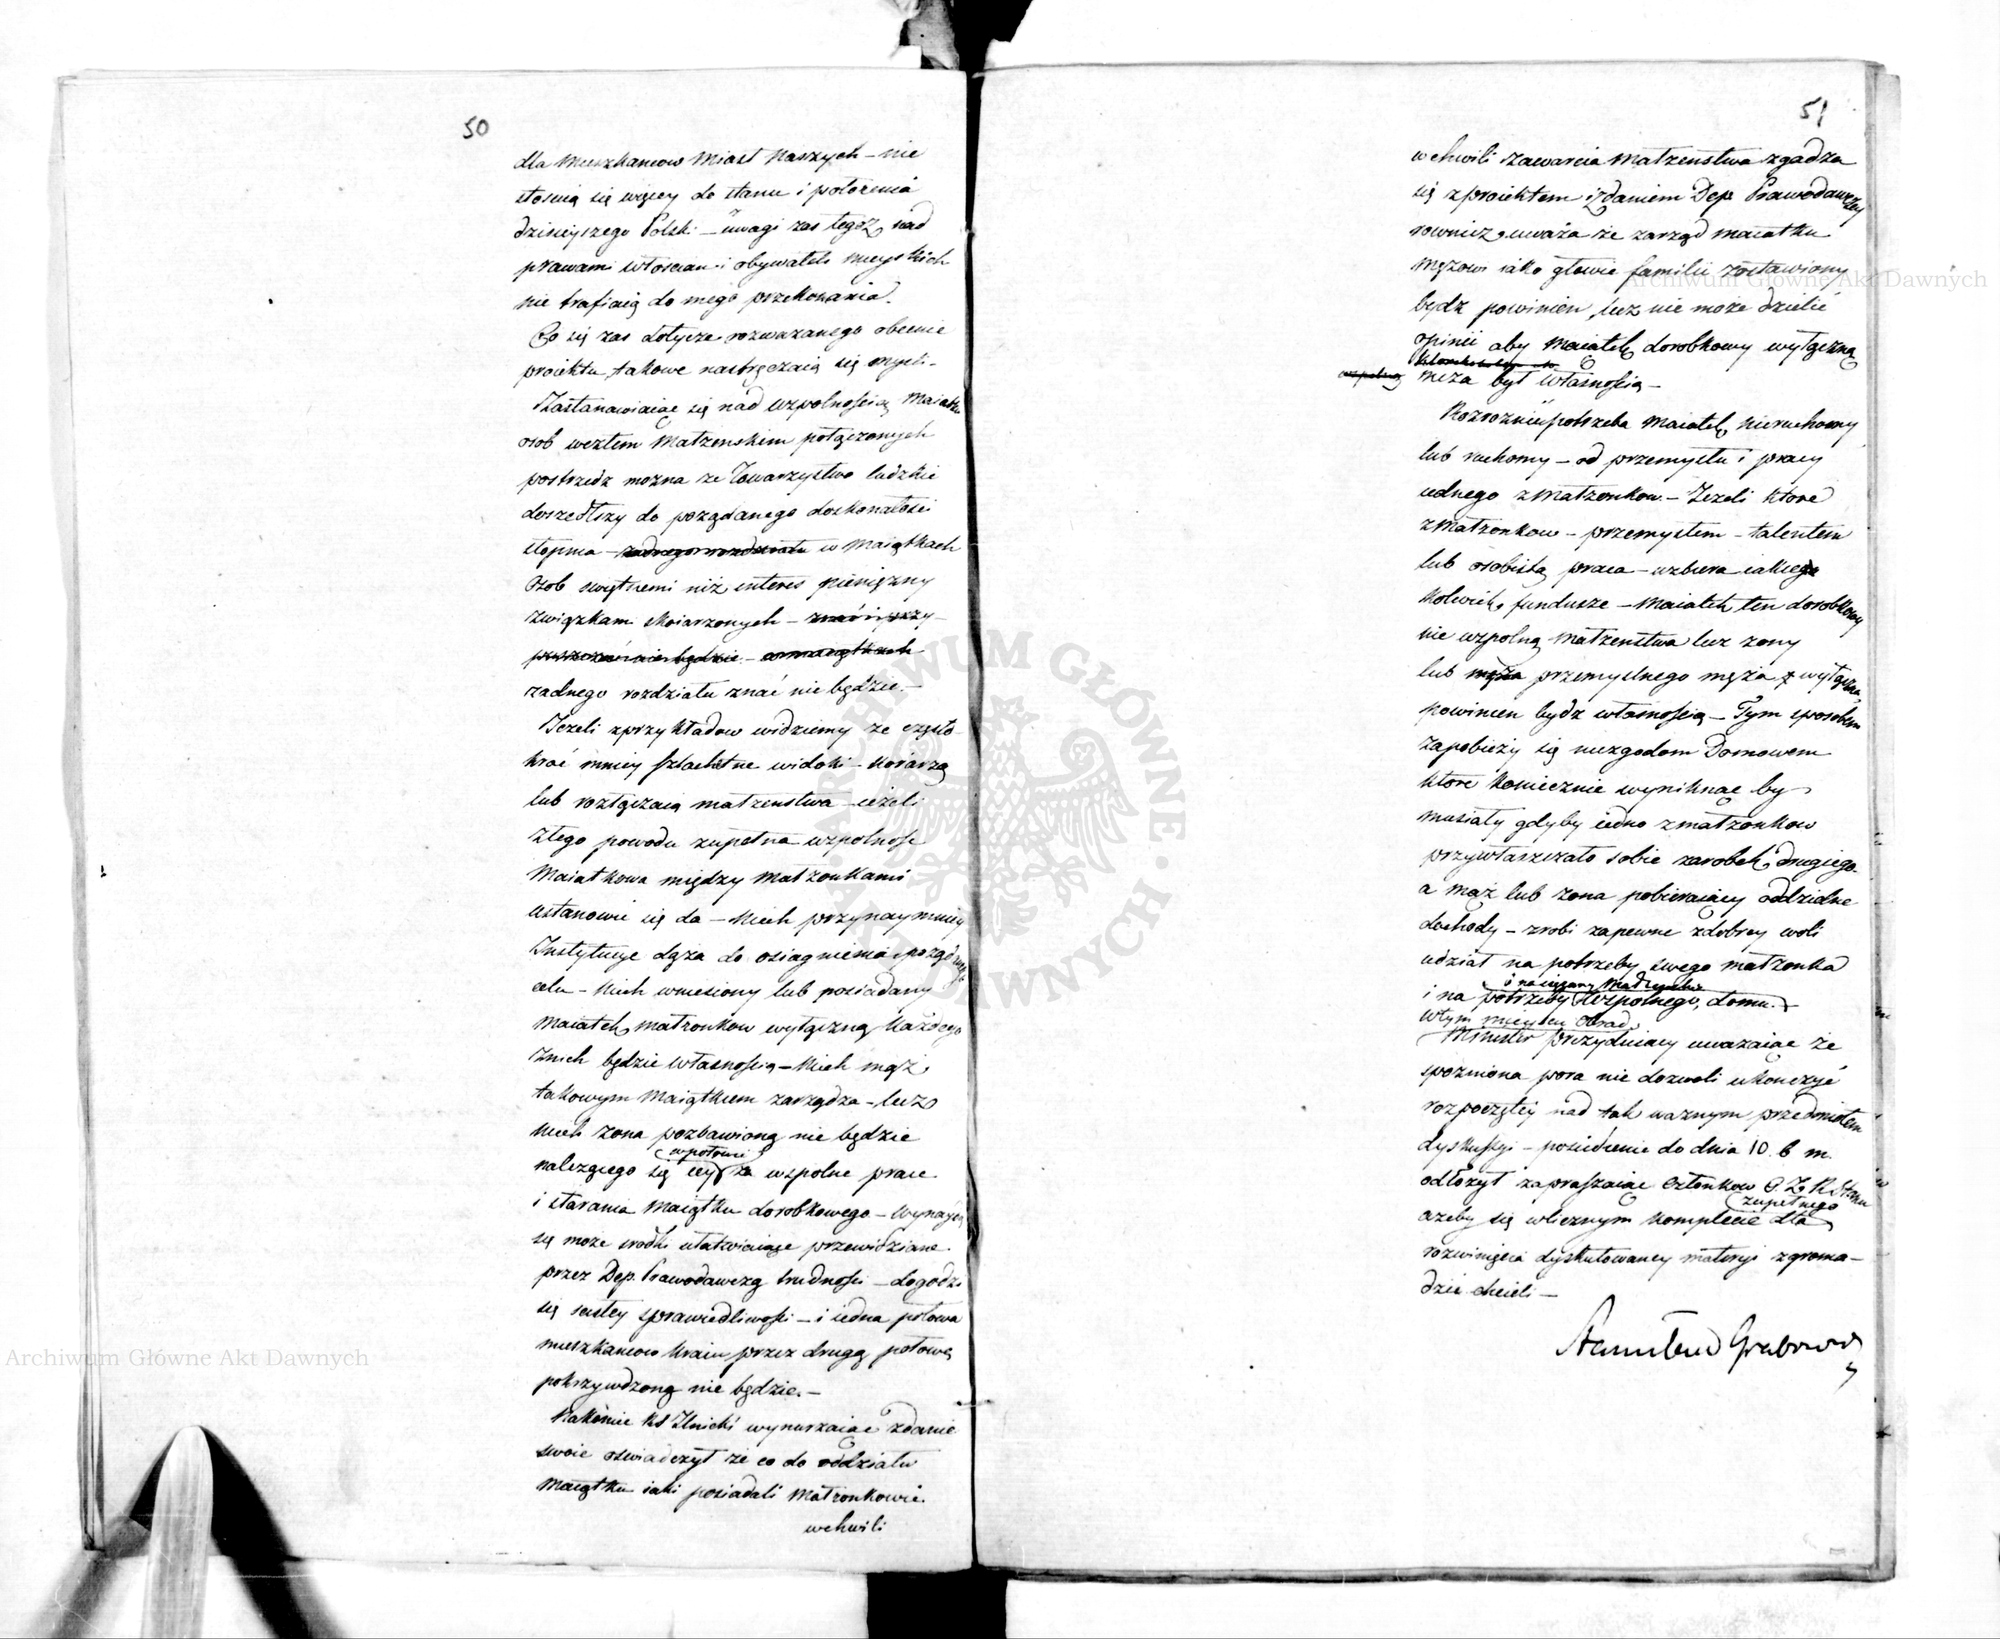 50
dla Mieszkancow Miast Naszych – nie
stosuią się więcey do stanu i położenia
dzisieyszego Polski – uwagi zas tegoż nad
prawami włoscian i obywateli mieyskich
nie trafiaią do mego przekonania.
Co się zas dotycze rozważanego obecnie
proiektu, takowe nastręczaią się mysli –
Zastanawiaiąc się nad wspolnoscią Maiątku
osob węzłem Małżenskim połączonych
postrzedz można że Towarzystwo ludzkie
doszedłszy do pożądanego doskonałości
stopnia – żadnego rozdziału w Maiątkach
osob swiętszemi niż interes pieniężny
związkami skoiarzonych –
nie będzie – w maiątkach
żadnego rozdziału znać nie będzie. –
Jeżeli z przykładow widziemy że często
kroć mniey szlachetne widoki – koiarzą
lub rozłączaią małżenstwa – ieżeli
z tego powodu zupełna wspolnosc
Maiątkowa między Małżonkami
ustanowic się da – niech przynaymniey
Instytucye dążą do osiągnienia pożądanego
celu – niech wniesiony lub posiadany
Maiątek małżonkow wyłączną każdego
z nich będzie własnoscią – niech mąż
takowym Maiątkiem zarządza – lecz
niech żona pozbawioną nie będzie
w połowie
należącego się iey za wspolne prace
i starania Maiątku dorobkowego – wynayść
się może srodki ułatwiaiące przewidziane
przez Dep. Prawodawczą trudności – dogodzi
się scisłey sprawiedliwości – i iedna połowa
mieszkancow kraiu przez drugą połowę
pokrzywdzoną nie będzie. –
Nakoniec KS Ilnicki wynurzaiąc zdanie
swoie oswiadczył że co do oddziału
Maiątku iaki posiadali Małżonkowie
w chwili
51
w chwili zawarcia Małżenstwa zgadza
się z proiektem i zdaniem Dep. Prawodawczey
rownież uważa że zarząd maiątku
mężowi iako głowie familii zostawiony
bydź powinien, lecz nie może dzielić
opinii aby Maiątek dorobkowy wyłączną
męża był własnoscią –
Rozrożnić potrzeba Maiątek nieruchomy
lub ruchomy – od przemysłu i pracy
iednego z Małżonkow – Jeżeli ktore
z Małżonkow – przemysłem – talentem
lub osobistą praca – uzbiera iakieg
kolwiek fundusze – Maiątek ten dorobkowy
nie wspolną Małżenstwa lecz żony
lub męża przemyslnego męża wyłączną
powinien bydź własnoscią – Tym sposobem
zapobieży się niezgodom Domowem
ktore koniecznie wyniknąc by
musiały gdyby iedno z małżonkow
przywłaszczało sobie zarobek drugiego
a mąż lub żona pobieraiący oddzielne
dochody – zrobi zapewne z dobrey woli
udział na potrzeby swego małżonka
i na ciężary Małżenskie
i na potrzeby wspolnego domu. –
W tym mieyscu obrad
Minister prezyduiący uważaiąc że
spozniona pora nie dozwoli ukonczyć
rozpoczętey nad tak ważnym przedmiotem
dyskussyi – posiedzenie do dnia 10. b. m.
odłożył zapraszaiąc Członkow O. Z. R. Stanu
zupełnego
ażeby się w licznym komplecie dla
rozwinięcia dyskutowaney materyi zgroma–
dzić chcieli –
Stanisław Grabowski
Archiwum Główne Akt Dawnych
Archiwum Główne Akt Dawnych
ARCHIWUM GŁÓWNE AKT DAWNYCH